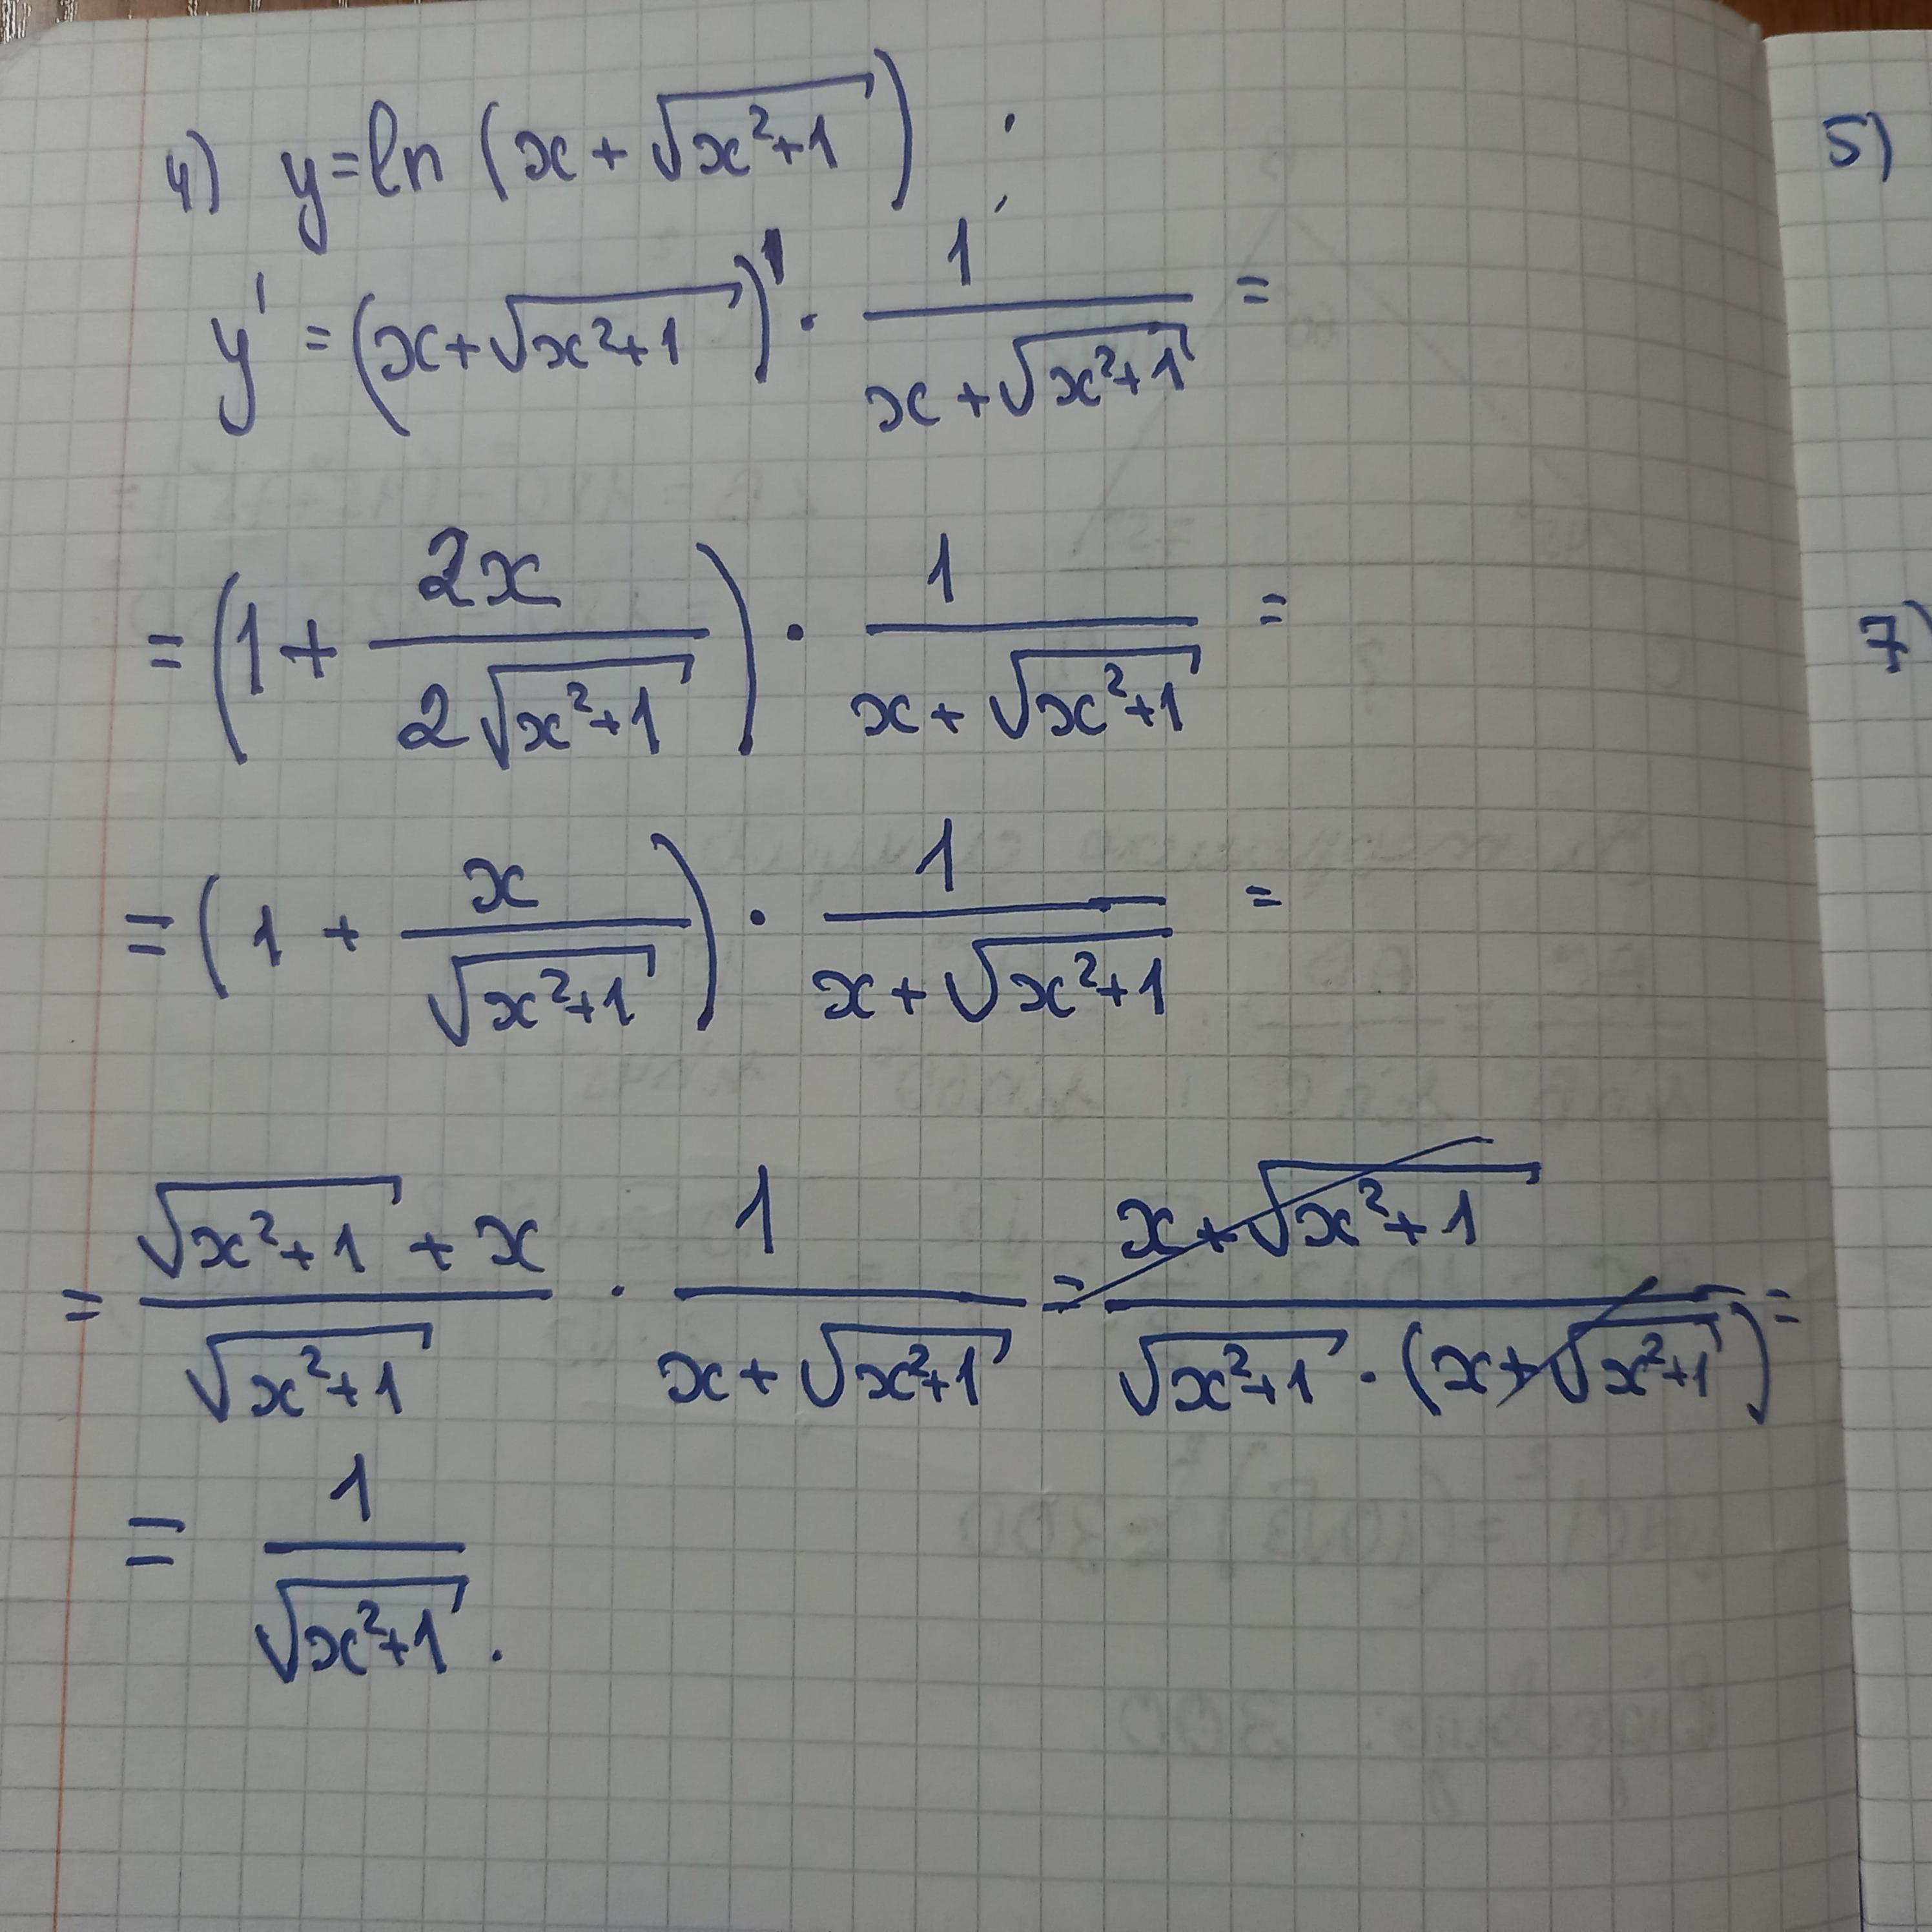 4) y=ln (x+√(x²+1)) ;
y' = (x+√(x²+1))' · 1/(x+√(x²+1)) =
= (1 + 2x/(2√(x²+1))) · 1/(x+√(x²+1)) =
= (1 + x/√(x²+1)) · 1/(x+√(x²+1)) =
= (√(x²+1) + x)/√(x²+1) · 1/(x+√(x²+1)) = (x+√(x²+1))/(√(x²+1) · (x+√(x²+1))) =
= 1/√(x²+1) .
5)
7)